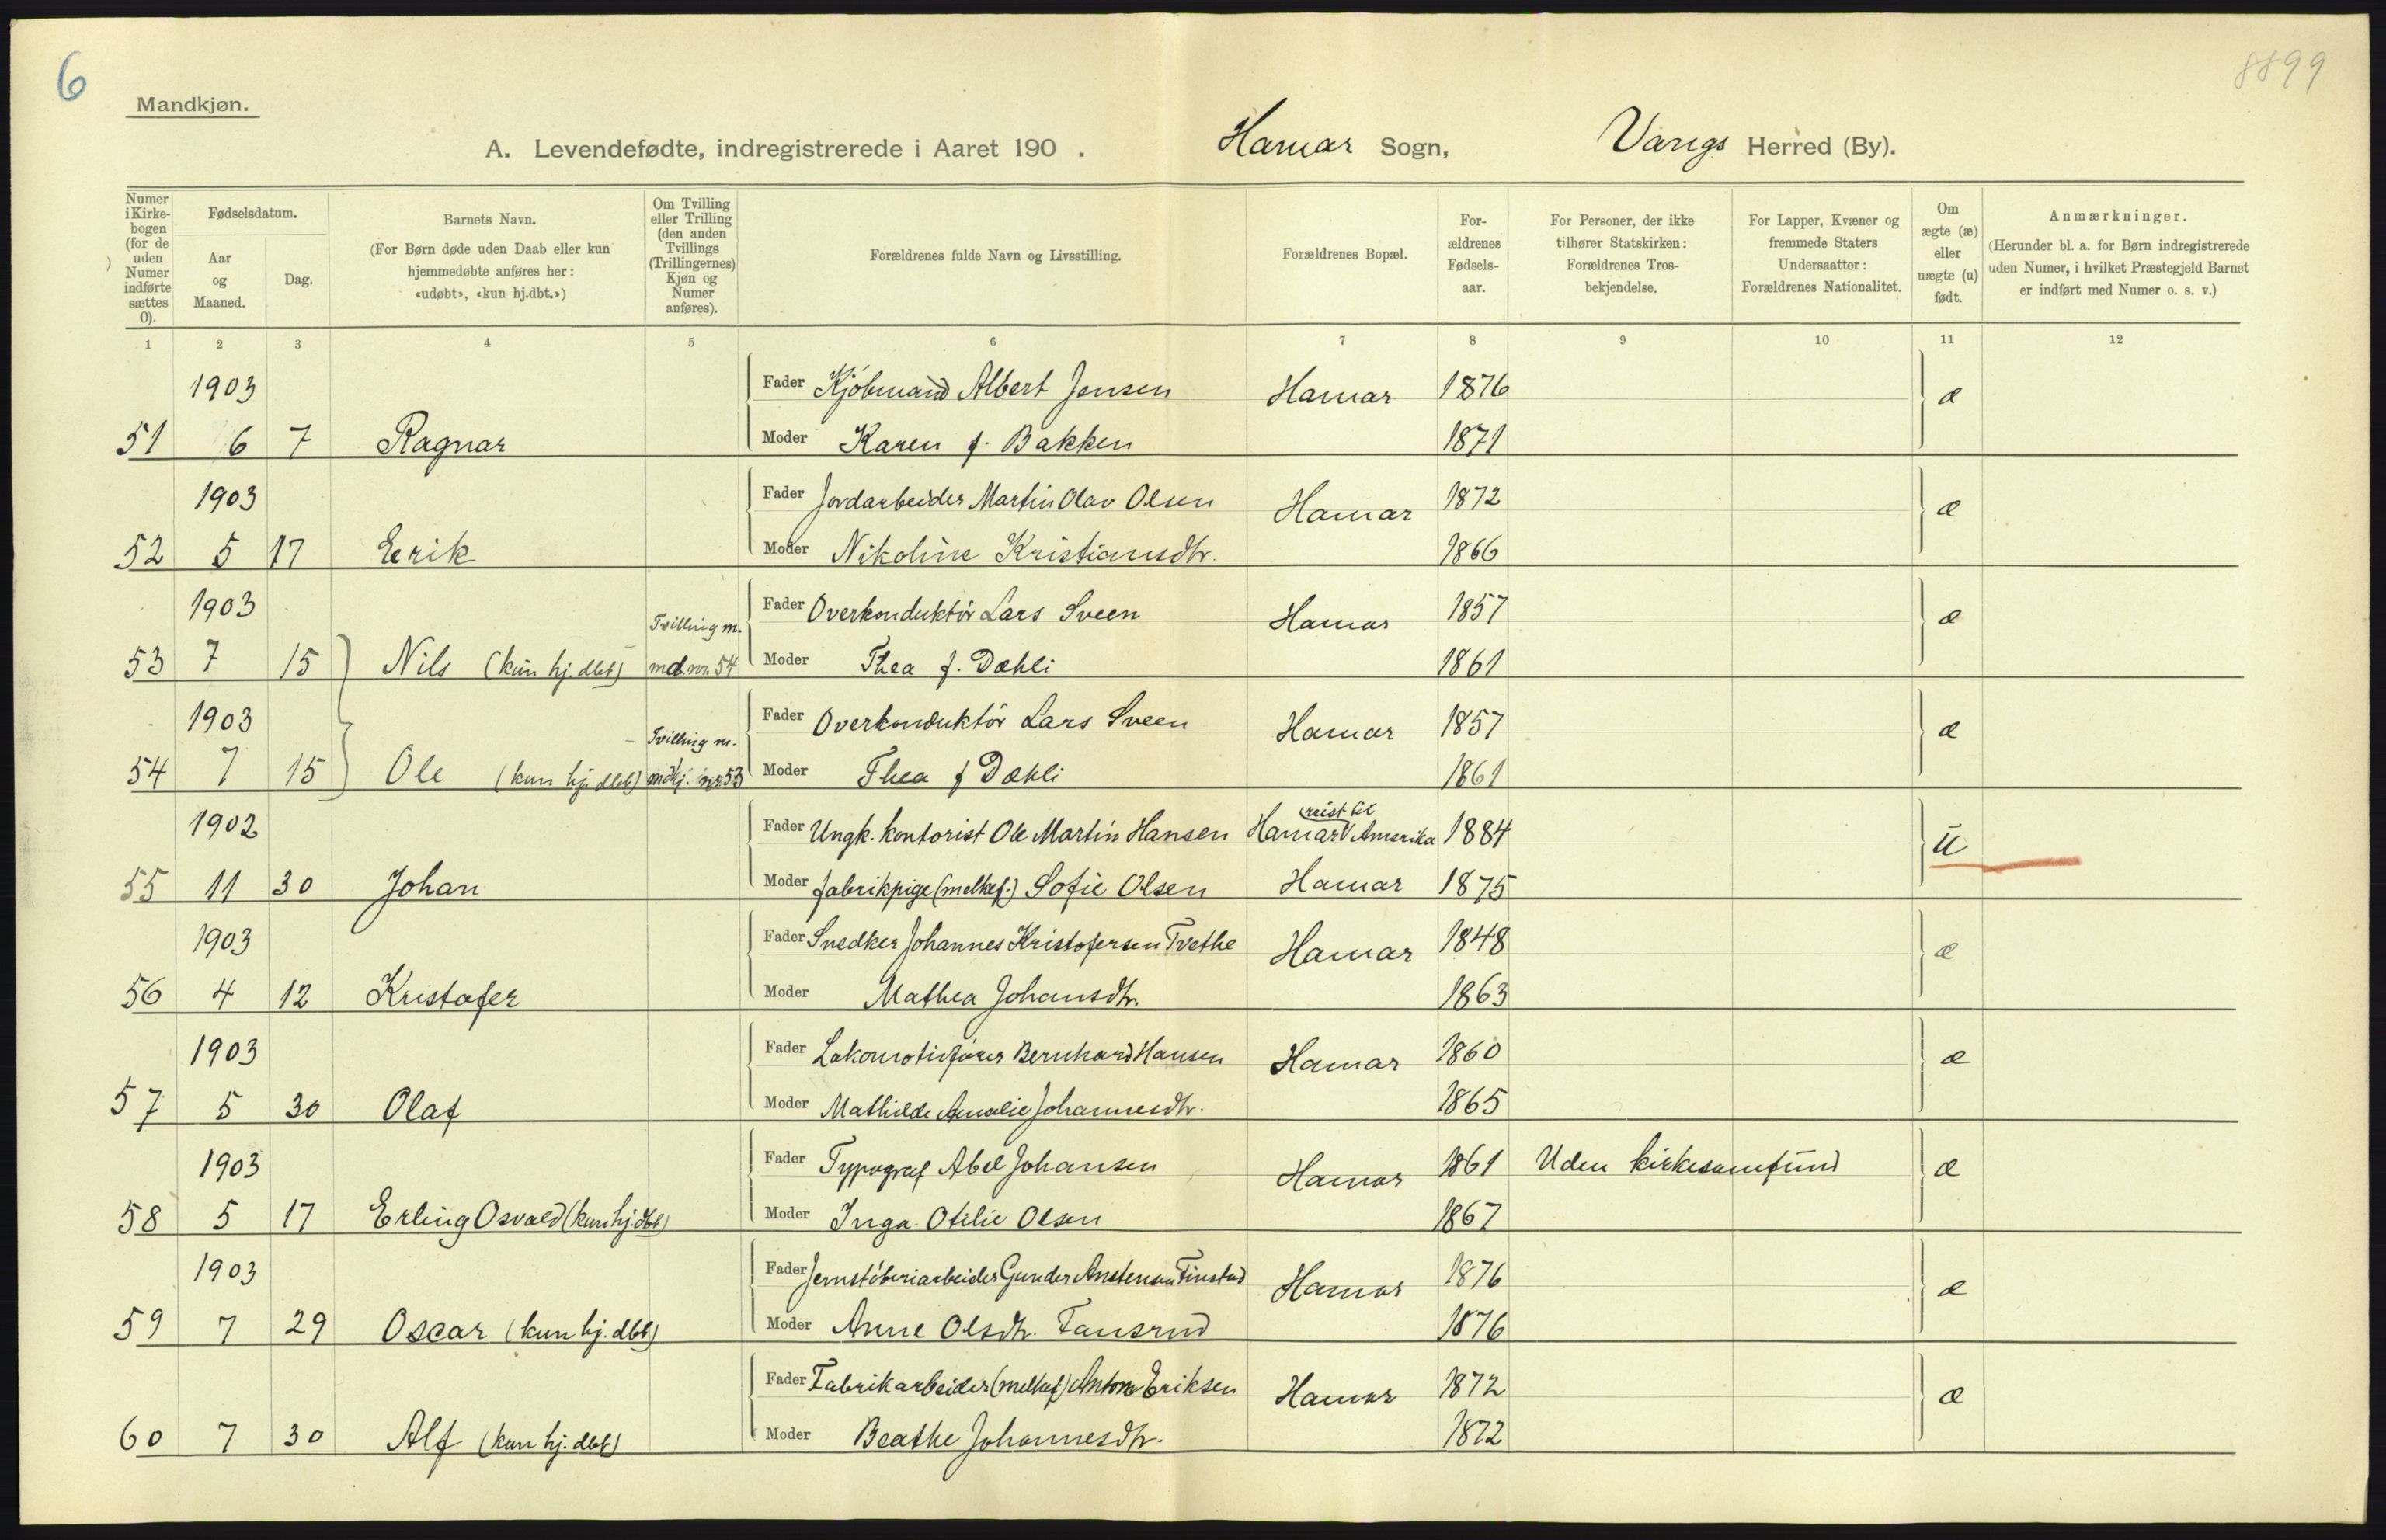 6
8899
Mandkjøn.
A. Levendefødte, indregistrerede i Aaret 190 . Hamar Sogn, Vangs Herred (By).
Numer i Kirkebogen (for de uden Numer indførte sættes 0).
Fødselsdatum.
Aar og Maaned.
Dag.
Barnets Navn.
(For Børn døde uden Daab eller kun
hjemmedøbte anføres her:
«udøbt», «kun hj.dbt.»)
Om Tvilling
eller Trilling
(den anden
Tvillings
(Trillingernes)
Kjøn og
Numer
anføres).
Forældrenes fulde Navn og Livsstilling.
Forældrenes Bopæl.
For-
ældrenes
Fødsels-
aar.
For Personer, der ikke
tilhører Statskirken:
Forældrenes Tros-
bekjendelse.
For Lapper, Kvæner og
fremmede Staters
Undersaatter:
Forældrenes Nationalitet.
Om
ægte (æ)
eller
uægte (u)
født.
Anmærkninger.
(Herunder bl. a. for Børn indregistrerede
uden Numer, i hvilket Præstegjeld Barnet
er indført med Numer o. s. v.)
1 2 3 4 5 6 7 8 9 10 11 12
1903 Fader Kjøbmand Albert Jensen Hamar 1876 æ
51 6 7 Ragnar Moder Karen f. Bakken 1871
1903 Fader Jordarbeider Martin Olav Olsen Hamar 1872 æ
52 5 17 Erik Moder Nikoline Kristiansdtr. 1866
1903 Tvilling m. Fader Overkonduktør Lars Sveen Hamar 1857 æ
53 7 15 Nils (kun hj.dbt) md. nr. 54 Moder Thea f. Dæhli 1861
1903 Tvilling m. Fader Overkonduktør Lars Sveen Hamar 1857 æ
54 7 15 Ole (kun hj.dbt) mdkj. nr 53 Moder Thea f Dæhli 1861
1902 Fader Ungk. kontorist Ole Martin Hansen Hamar (reist til Amerika 1884 u
55 11 30 Johan Moder fabrikpige (melkef.) Sofie Olsen Hamar 1875
1903 Fader Snedker Johannes Kristofersen Tvethe Hamar 1848 æ
56 4 12 Kristofer Moder Mathea Johansdtr. 1863
1903 Fader Lokomotivfører Bernhard Hansen Hamar 1860 æ
57 5 30 Olaf Moder Mathilde Amalie Johannesdtr. 1865
1903 Fader Typograf Abel Johansen Hamar 1861 Uden kirkesamfund æ
58 5 17 Erling Osvald (kun hj.dbt) Moder Inga Otilie Olsen 1867
1903 Fader Jernstøberiarbeider Gunder Anstensen Finstad Hamar 1876 æ
59 7 29 Oscar (kun hj.dbt) Moder Anne Olsdtr. Fansrud 1876
Fader Fabrikarbeider (melkef) Anton Eriksen Hamar 1872 æ
60 7 30 Alf (kun hj.dbt) Moder Beathe Johannesdtr. 1872